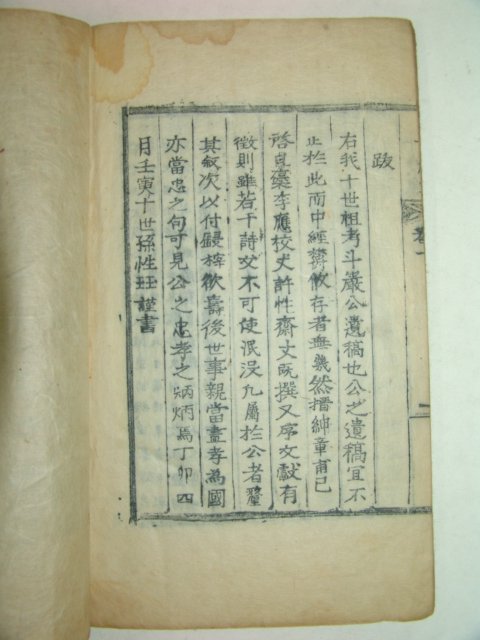 跋
右我十世祖考斗巖公遺稿也公之遺稿宜不
止於此而中經燹散存者無幾然搢紳章甫已
啓其藁李應校丈許性齋丈旣撰又序文獻有
徵則雖若干詩文不可使泯沒凡屬於公者釐
其叙次以付剞榟欲壽後世事親當盡孝為國
亦當忠之句可見公之忠孝之炳炳焉丁卯四
月壬寅十世孫性玨謹書
卷一